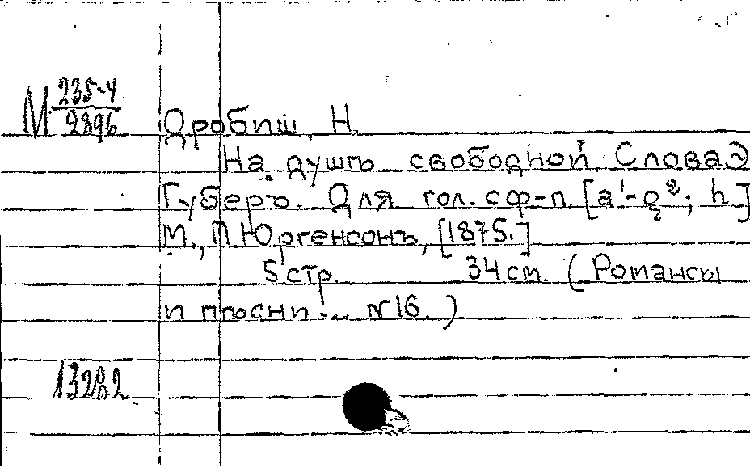 М 235-4
2896
Дробиш, Н.
На душѣ свободной. Слова Э
Губеръ. Для гол. с ф-п. [a¹-g²; h]
М., П. Юргенсонъ, [1875.]
5 стр. 34 см. (Романсы
и пѣсни ... №16.)
13282